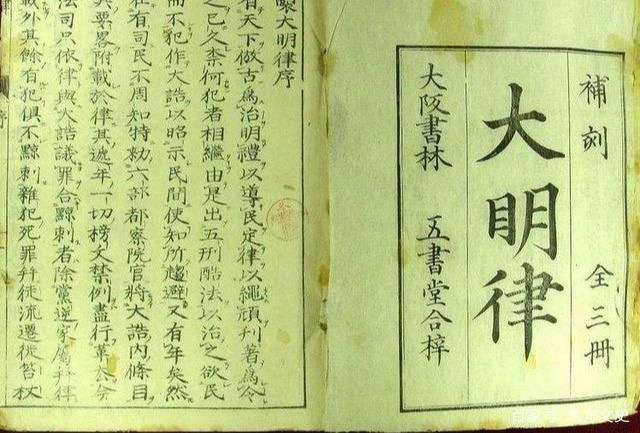 補刻 全三冊
大明律
大阪書林 五書堂合梓
製大明律序
有天下倣古爲治明禮以導民定律以繩頑刊著爲令
之已久柰何犯者相繼由是出五刑酷法以治之欲民
而不犯作大誥以昭示民間使知所趨避又有年矣然
在有司民不周知特勅六部都察院官將大誥內條目
其要畧附載於律其遞年一切榜文禁例盡行革去今
法司只依律與大誥議罪合黥刺者除黨逆家屬幷律
載外其餘有犯俱不黥刺雜犯死罪幷徒流遷徙笞杖